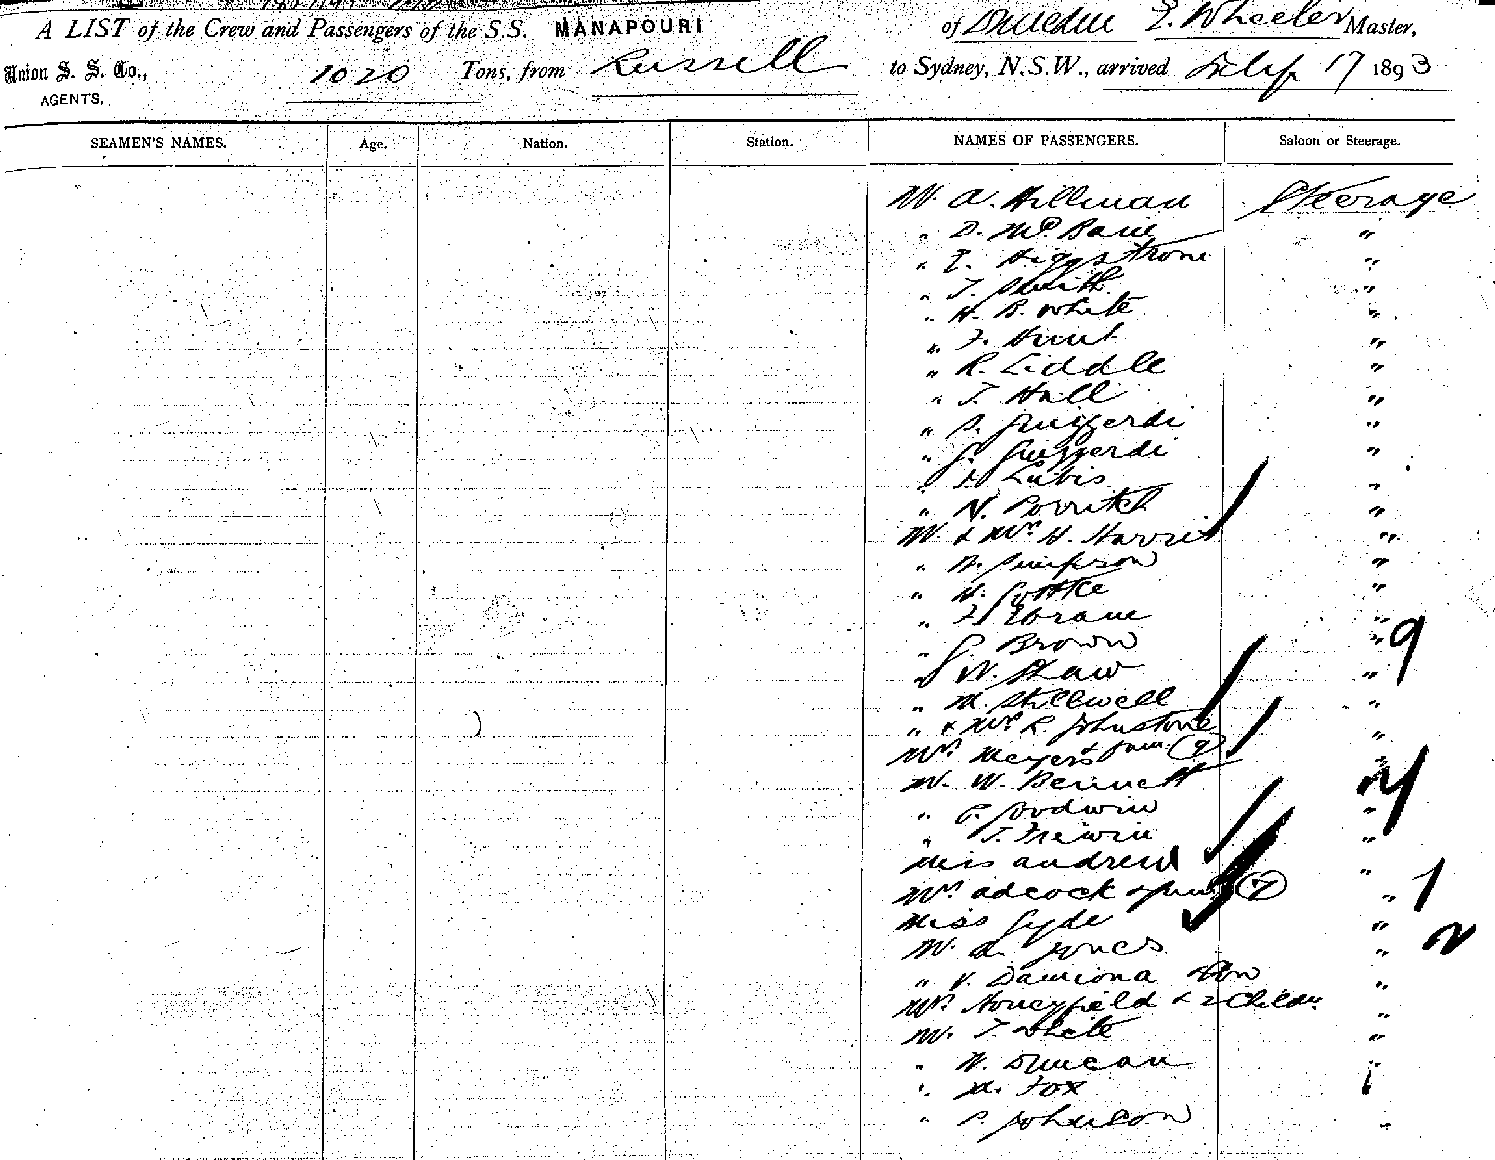 A LIST of the Crew and Passengers of the S.S. MANAPOURI of Dunedin E. Wheeler Master,
Union S. S. Co., 1020 Tons, from Russell to Sydney, N.S.W., arrived July 17 1893
AGENTS,
SEAMEN'S NAMES. Age. Nation. Station. NAMES OF PASSENGERS. Saloon or Steerage.
Mr. A. Hillman Steerage
" D. "
" E. Higgstrone "
" T. Smith "
" H. B. White "
" F. Hunt "
" R. Liddle "
" T. Hall "
" S. "
" G. "
" Lubis "
" N. "
Mr. & Mrs H. Harris "
" Simpson "
" H. "
" "
" G. Brown " 9
" W. Shaw "
" M. Stillwell "
" & Mrs R. Johnstone "
Mrs Meyers & fam (9) "
Mr. W. Bennett
" Goodwin "
" T. "
Miss Andrew "
Mrs Adcock & fam (7) " 1
Miss Gyde "
Mr. Jones " 2
" V. Damiona & Son "
Mrs Honeyfield & 2 Childn "
Mr. T. White "
" W. Duncan
" Fox
" Johnson "